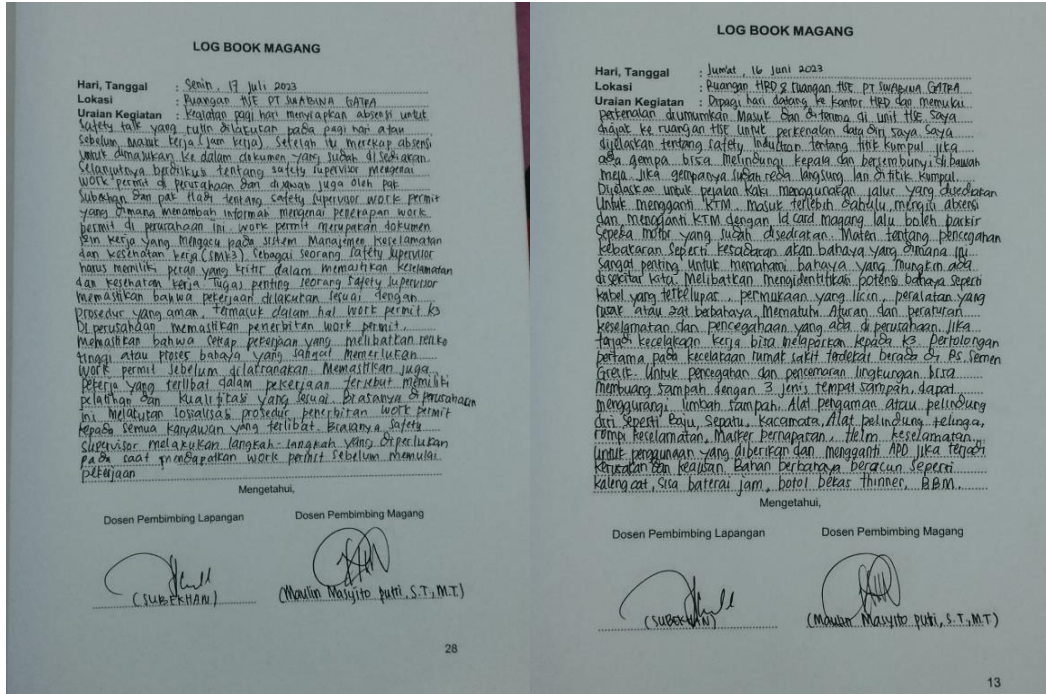 LOG BOOK MAGANG
Hari, Tanggal : Senin, 17 Juli 2023
Lokasi : Ruangan HSE PT SWABINA GATRA
Uraian Kegiatan : Kegiatan pagi hari menyiapkan absensi untuk
Safety talk yang rutin dilakukan pada pagi hari atau
sebelum masuk kerja (jam kerja). Setelah itu merekap absensi
untuk dimasukan ke dalam dokumen yang sudah disediakan.
Selanjutnya berdiskusi tentang safety supervisor mengenai
work permit di perusahaan dan dijawab juga oleh Pak
Subekhan dan pak Hadi tentang safety supervisor work permit
yang dimana menambah informasi mengenai penerapan work
permit di perusahaan ini. work permit merupakan dokumen
izin kerja yang mengacu pada sistem Manajemen keselamatan
dan kesehatan kerja (SMK3) sebagai seorang safety supervisor
harus memiliki peran yang kritis dalam memastikan keselamatan
dan kesehatan kerja. Tugas penting seorang safety supervisor
memastikan bahwa pekerjaan dilakukan sesuai dengan
prosedur yang aman, termasuk dalam hal work permit k3
Di perusahaan memastikan penerbitan work permit.
memastikan bahwa setiap pekerjaan yang melibatkan resiko
tinggi atau proses bahaya yang sangat memerlukan
work permit sebelum dilaksanakan. Memastikan juga
pekerja yang terlibat dalam pekerjaan tersebut memiliki
pelatihan dan kualifikasi yang sesuai. Biasanya di perusahaan
ini melakukan sosialisasi prosedur penerbitan work permit
kepada semua karyawan yang terlibat. Biasanya safety
supervisor melakukan langkah-langkah yang diperlukan
pada saat mendapatkan work permit sebelum memulai
pekerjaan
Mengetahui,
Dosen Pembimbing Lapangan Dosen Pembimbing Magang
(SUBEKHAN) (Maulin Masyito putri, S.T., M.T.)
28
LOG BOOK MAGANG
Hari, Tanggal : Jum'at, 16 Juni 2023
Lokasi : Ruangan HRD & ruangan HSE PT SWABINA GATRA
Uraian Kegiatan : Dipagi hari datang ke kantor HRD dan memulai
perkenalan diumumkan Masuk dan diterima di unit HSE. Saya
diajak ke ruangan HSE untuk perkenalan data diri saya. Saya
dijelaskan tentang safety induction tentang titik kumpul jika
ada gempa bisa melindungi kepala dan bersembunyi dibawah
meja. Jika gempanya sudah reda langsung lari dititik kumpul.
Dijelaskan untuk pejalan kaki menggunakan jalur yang disediakan
Untuk mengganti KTM. Masuk terlebih dahulu, mengisi absensi
dan mengganti KTM dengan Id card magang lalu boleh parkir
sepeda motor yang sudah disediakan. Materi tentang pencegahan
kebakaran seperti kesadaran akan bahaya yang dimana ini
sangat penting untuk memahami bahaya yang mungkin ada
disekitar kita. Melibatkan mengidentifikasi potensi bahaya seperti
kabel yang terkelupas, permukaan yang licin, peralatan yang
rusak atau zat berbahaya, Mematuhi Aturan dan peraturan
keselamatan dan pencegahaan yang ada di perusahaan. Jika
terjadi kecelakaan kerja bisa melaporkan kepada k3. Pertolongan
pertama pada kecelakaan rumah sakit terdekat berada di RS. Semen
Gresik. Untuk pencegahan dan pencemaran lingkungan bisa
membuang sampah dengan 3 jenis tempat sampah, dapat
menggurangi limbah sampah. Alat pengaman atau pelindung
diri seperti Baju, Sepatu, kacamata, Alat pelindung telinga,
rompi keselamatan, Masker pernapasan, Helm keselamatan.
untuk penggunaan yang diberikan dan mengganti APD jika terjadi
kerusakan dan keausan. Bahan berbahaya beracun seperti
kaleng cat, sisa baterai jam, botol bekas thinner, BBM.
Mengetahui,
Dosen Pembimbing Lapangan Dosen Pembimbing Magang
(SUBEKHAN) (Maulin Masyito putri, S.T., M.T)
13